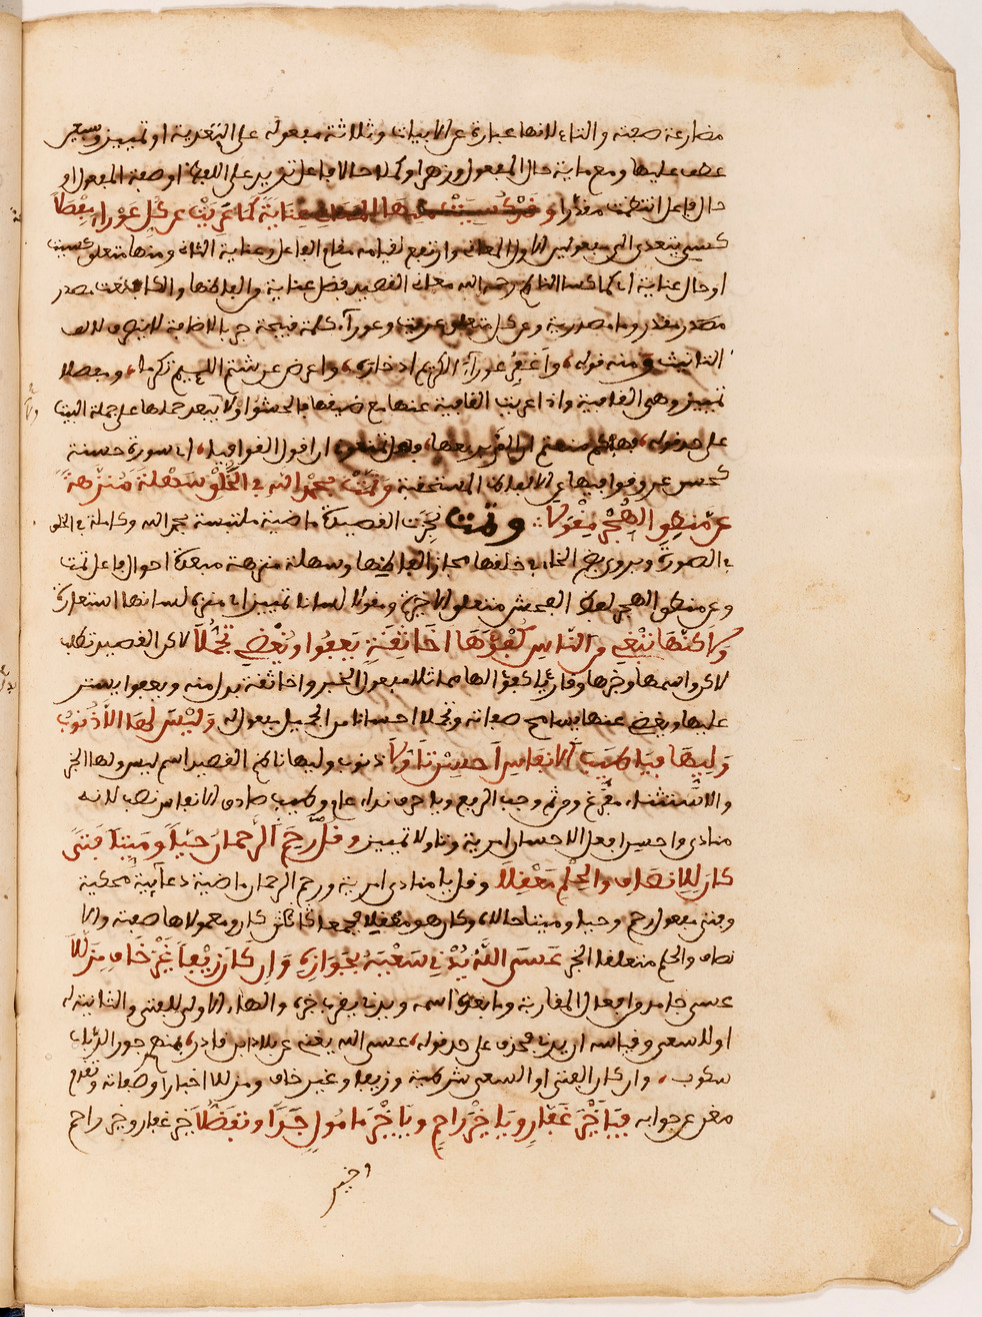 مضارعة صفته والتاء لانها عبارة عن الابيات وثلاثة مفعوله على التعدية او تمييز وسبعين
عطف عليها ومع ماية حال المفعول وزهرا وكملا حالا فاعل تزيد على اللف او صفة المفعول او
حال فاعل انتظمت مقدرا وقد كسيت منها المعاني عناية كما عريت عن كل عوراء مفصلا
كسى يتعدى الى مفعولين الاول المعاني وارتفع لقيامه مقام الفاعل وعناية الثاني ومنها متعلق كسيت
او حال عناية اي كما كسا الناظم رحمه الله معاني القصيد فضل عناية والفاظها والكاف نعت مصدر
مصدر مقدر وما مصدرية وعن كل متعلق عريت وعوراء كلمة قبيحة جر بالاضافة لا ينصرف لالف
التانيث ومنه قوله واغفر عوراء الكريم ادخاره واعرض عن شتم اللئيم تكرما ومفصلا
تمييز وهي القافية واذا عريت القافية عنها مع ضيقها فالحشو اولى ولا يبعد حملها على جملة البيت
على حد قوله ان اقول القوافيا اي سورة حسنة
كحسن عروقوافيها في الالفاظ المستحقة وتمت بحمد الله في الخلق سهلة منزهة
عن منطق الهجر مقولا وتمت تجزت القصيدة ماضية ملتبسة بحمد الله وكاملة في الخلق
في الصورة ويروى بضم الخاء اي خلقها مجاز الفاظها وسهلة منزهة مبعدة احوال فاعل تمت
وعن منطق الهجر لفظ الفحش متعلق الاخيرة ومقولا لسانا تمييز اي منزه لسانها استعارة
ولكنها تبغي من الناس كفؤها اخا ثقة يعفوا ويغضي تجملا لاكن القصيد تطلب
لاكن واسمها وخبرها وقارئا كفؤا لها مماثلا مفعول الخبر واخا ثقة بدل منه ويعفوا يستر
عليها ويغضي عنها يسامح صفاته وتجملا احسانا من الجميل مفعول له وليس لها الا ذنوب
وليها فيا طيب الانفاس احسن تاولا ذنوب وليها ناظم القصيد اسم ليس ولها الخبر
والاستثناء مفرغ ومن ثم وجب الرفع ويا حرف نداء عام وطيب صادق الانفاس نصب لانه
منادى واحسن افعل الاحسان امرية وتاولا تمييز وقل رحم الرحمان حيا وميتا فتى
كان للانصاف والحلم معقلا وقل يا منادى امرية ورحم الرحمان ماضية دعائية محكية
وفتى مفعول رحم وحيا وميتا حالاه وكان هو معقلا مجمعا كائن كان ومعمولاها صفته والا
نصاف والحلم متعلقا الخبر عسى الله يدني سعيه بجوازه وان كان زيفا غير خاف مزللا
عسى جامد وافعال المقاربة وما بعدها اسمه ويدني يقرب خبره والهاء الاولى للفتى والثانية له
او للسعي وقياسه ان يدني فحذف على حد قوله عسى الله يغني عن بلاد ابن قادر بمنهمر جون الرباب
سكوب وان كان الفتى او السعي شرطية وزيفا وغير خاف ومزللا اخبار او صفاته وتقدم
مغن عن جوابه فيا خير غفار ويا خير راحم ويا خير مامول جدا وتفضلا خير غفار وخير راحم
وخير